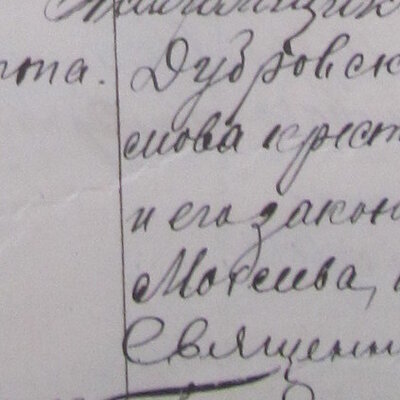 рта. Дубровск
мова крест
и его закон
Моисеева,
Священн